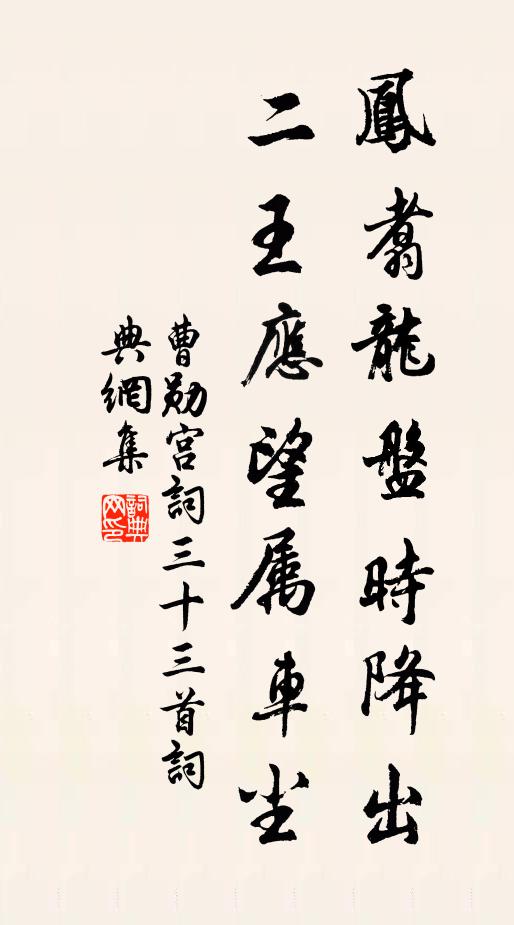 鳳翥龍盤時降出
二王應望属車尘
曹勛宮詞三十三首詞
典網集
詞典
网印